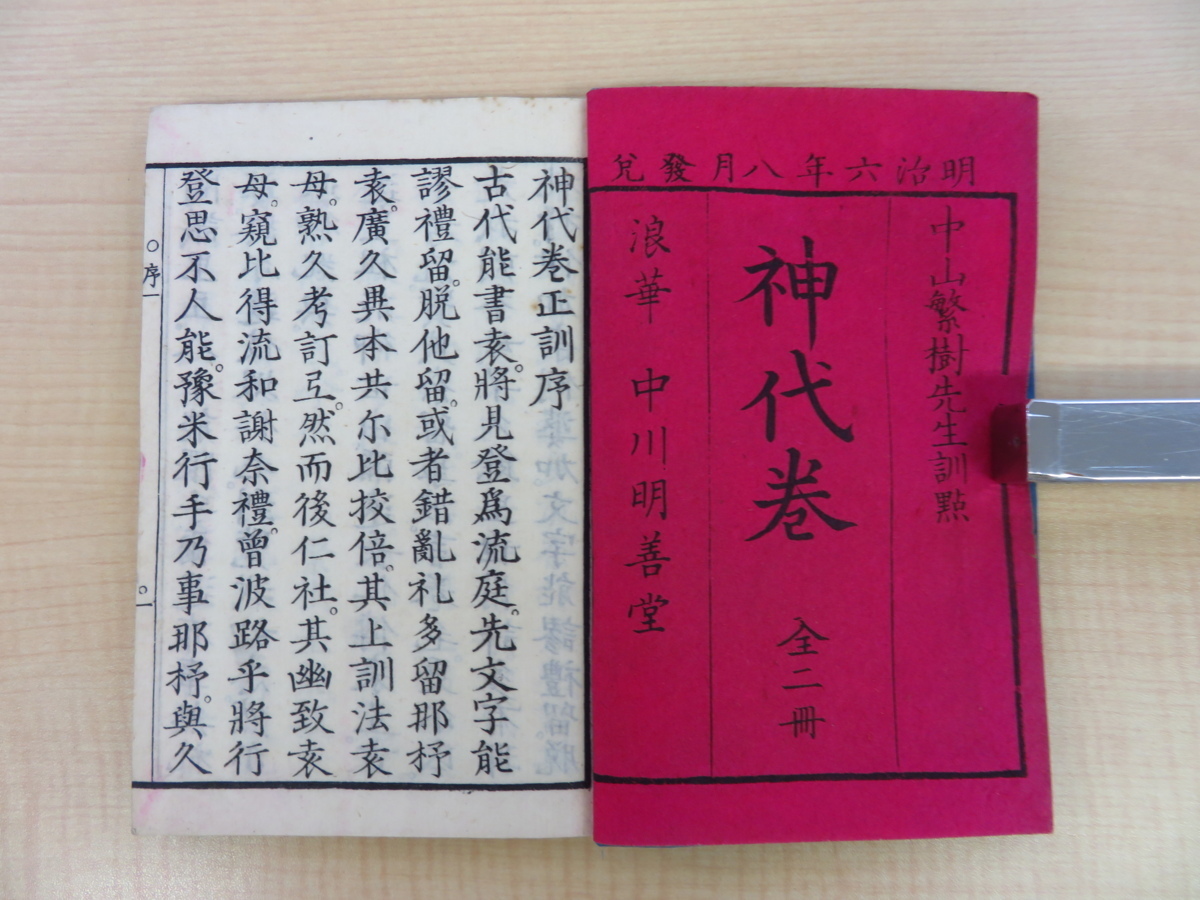 明治六年八月發兌
中山繁樹先生訓點
神代巻 全二冊
浪華 中川明善堂
神代巻正訓序
古代能書袁。將見登爲流庭。先文字能
謬禮留。脱他留。或者錯亂礼多留那抒
袁。廣久異本共尓比挍倍。其上訓法袁
母。熟久考訂弖。然而後仁社。其幽致袁
母。窺比得流和謝奈禮。曾波路乎將行
登思不人能。豫米行手乃事那抒。與久
○序一